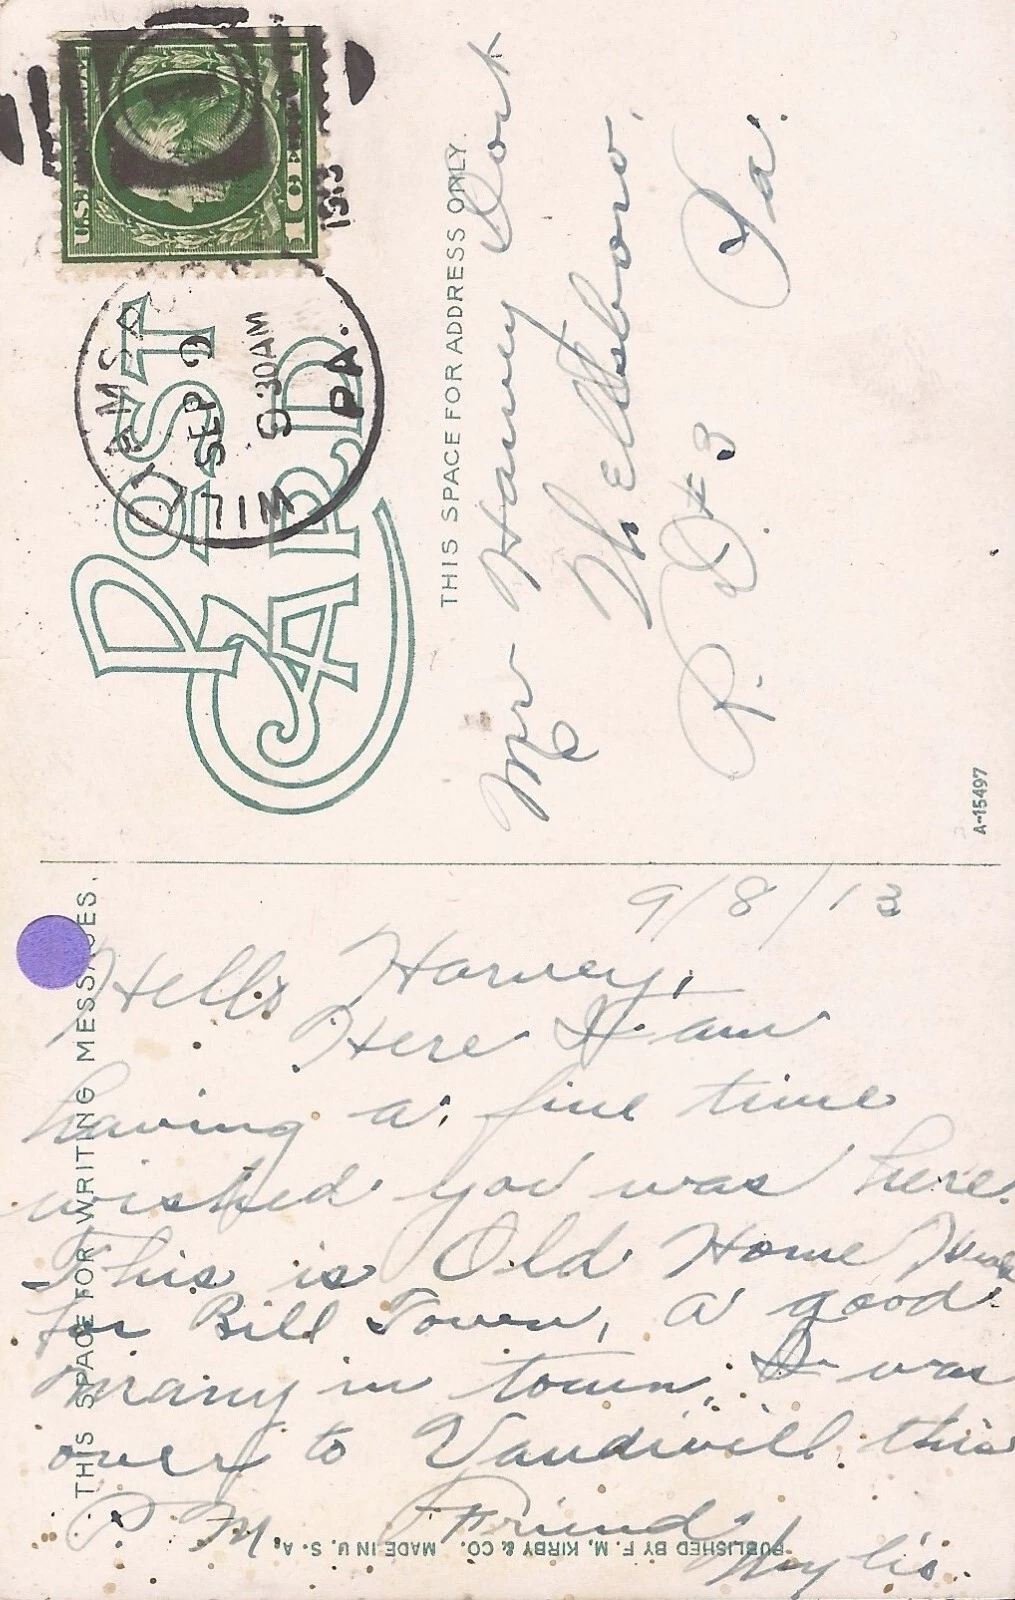 POST CARD
THIS SPACE FOR ADDRESS ONLY.
U.S.
1 CENT
WILLIAMSPORT
SEP 9
9 30AM
1913
PA.
Mr Harvey Dort
Wellsboro,
R. D. #3 Pa.
A-15497
THIS SPACE FOR WRITING MESSAGES.
9/8/13
Hello Harvey,
Here I am
having a fine time
wished you was here.
This is Old Home Week
for Bill Town, a good
many in town. I was
over to Vaudivill this
P. M. Friend
PUBLISHED BY F. M. KIRBY & CO. MADE IN U. S. A.